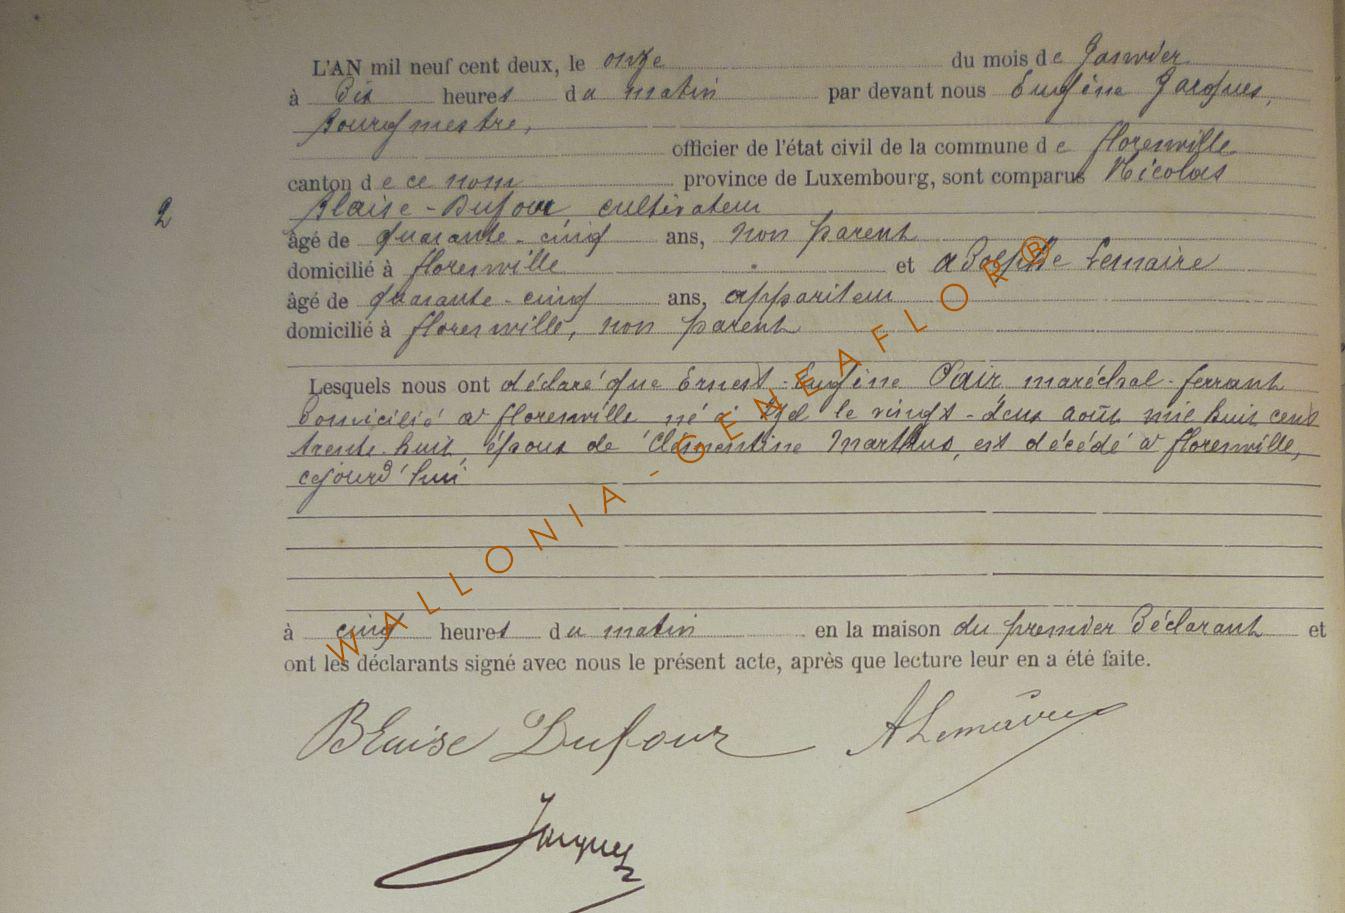 L'AN mil neuf cent deux, le onze du mois de Janvier
à Dix heures du matin par devant nous Eugène Jacques,
Bourgmestre,
officier de l'état civil de la commune de florenville
canton de ce nom province de Luxembourg, sont comparus Nicolas
2
Blaise-Dufour, cultivateur
âgé de quarante-cinq ans, non parent
domicilié à florenville et adolphe Lemaire
âgé de quarante-cinq ans, appariteur
domicilié à florenville, non parent
Lesquels nous ont déclaré que Ernest-Eugène maréchal-ferrant
domicilié à florenville né à le vingt-deux août mil huit cent
trente-huit, époux de Clémentine Marthus, est décédé à florenville,
cejourd'hui
à cinq heures du matin en la maison du premier déclarant et
ont les déclarants signé avec nous le présent acte, après que lecture leur en a été faite.
Blaise Dufour ALemaire
Jacques
WALLONIA-GENEAFLOR®